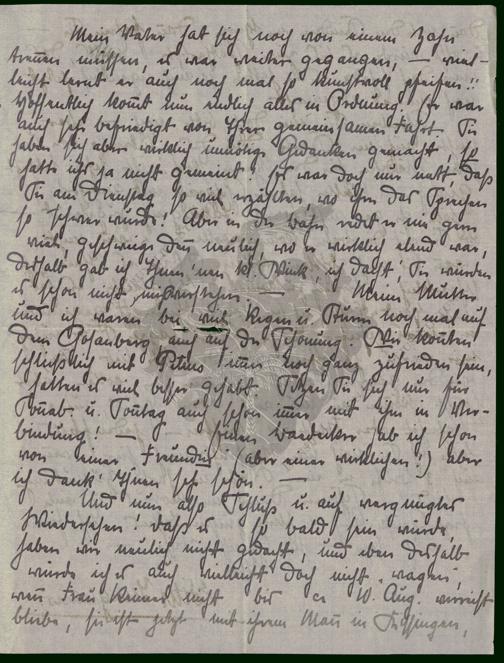 Mein Vater hat sich noch von einem Zahn
trennen müssen, es war weiter gegangen, — viel-
leicht lernt er auch noch mal so kunstvoll pfeifen!!
Hoffentlich kommt nun endlich alles in Ordnung. Er war
auch sehr befriedigt von Ihrer gemeinsamen Fahrt. Sie
haben sich aber wirklich unnötige Gedanken gemacht, so
hatte ich's ja nicht gemeint, es war doch nur nett, daß
Sie am Dienstag so viel erzählten, wo ihm das Sprechen
so schwer wurde! Aber in der Bahn redet er nie gern
viel, geschweige denn neulich, wo er wirklich elend war,
deshalb gab ich Ihnen 'nen kl. Wink, ich dacht', Sie würden
es schon nicht mißverstehen. — Meine Mutter
und ich waren bei viel Regen u. Sturm noch mal auf
dem auch auf der Schonung. Wir konnten
schließlich mit Petrus immer noch ganz zufrieden sein,
hatten es viel besser gehabt. Setzen Sie sich nur für
Sonnab. u. Sonntag auch schon immer mit ihm in Ver-
bindung! — Einen Baedeker hab ich schon
von einer Freundin (aber einer wirklichen!) aber
ich dank' Ihnen sehr schön. —
Und nun also Schluß u. auf vergnügtes
Wiedersehen! Daß es so bald sein würde,
haben wir neulich nicht gedacht, und eben deshalb
würde ich es auch vielleicht doch nicht „wagen",
wenn Frau nicht bis ca 10. Aug. verreist
bliebe, sie ist jetzt mit ihrem Mann in Kissingen,